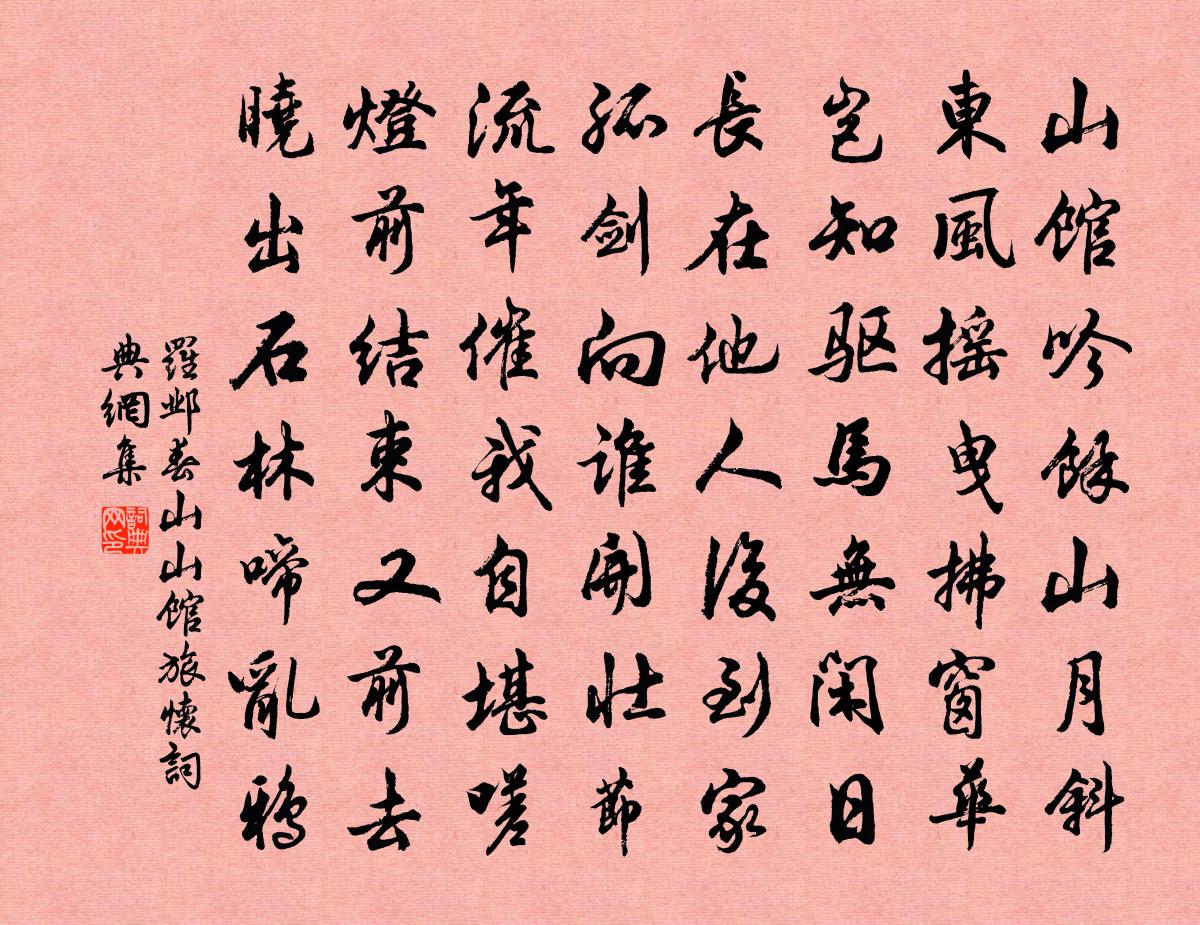 山館吟餘山月斜
東風搖曳拂窗華
豈知驱馬無閑日
長在他人後到家
孤剑向誰開壯節
流年催我自堪嗟
燈前結束又前去
曉出石林啼亂鴉
羅鄴春山山館旅懷詞
典網集
詞典網印